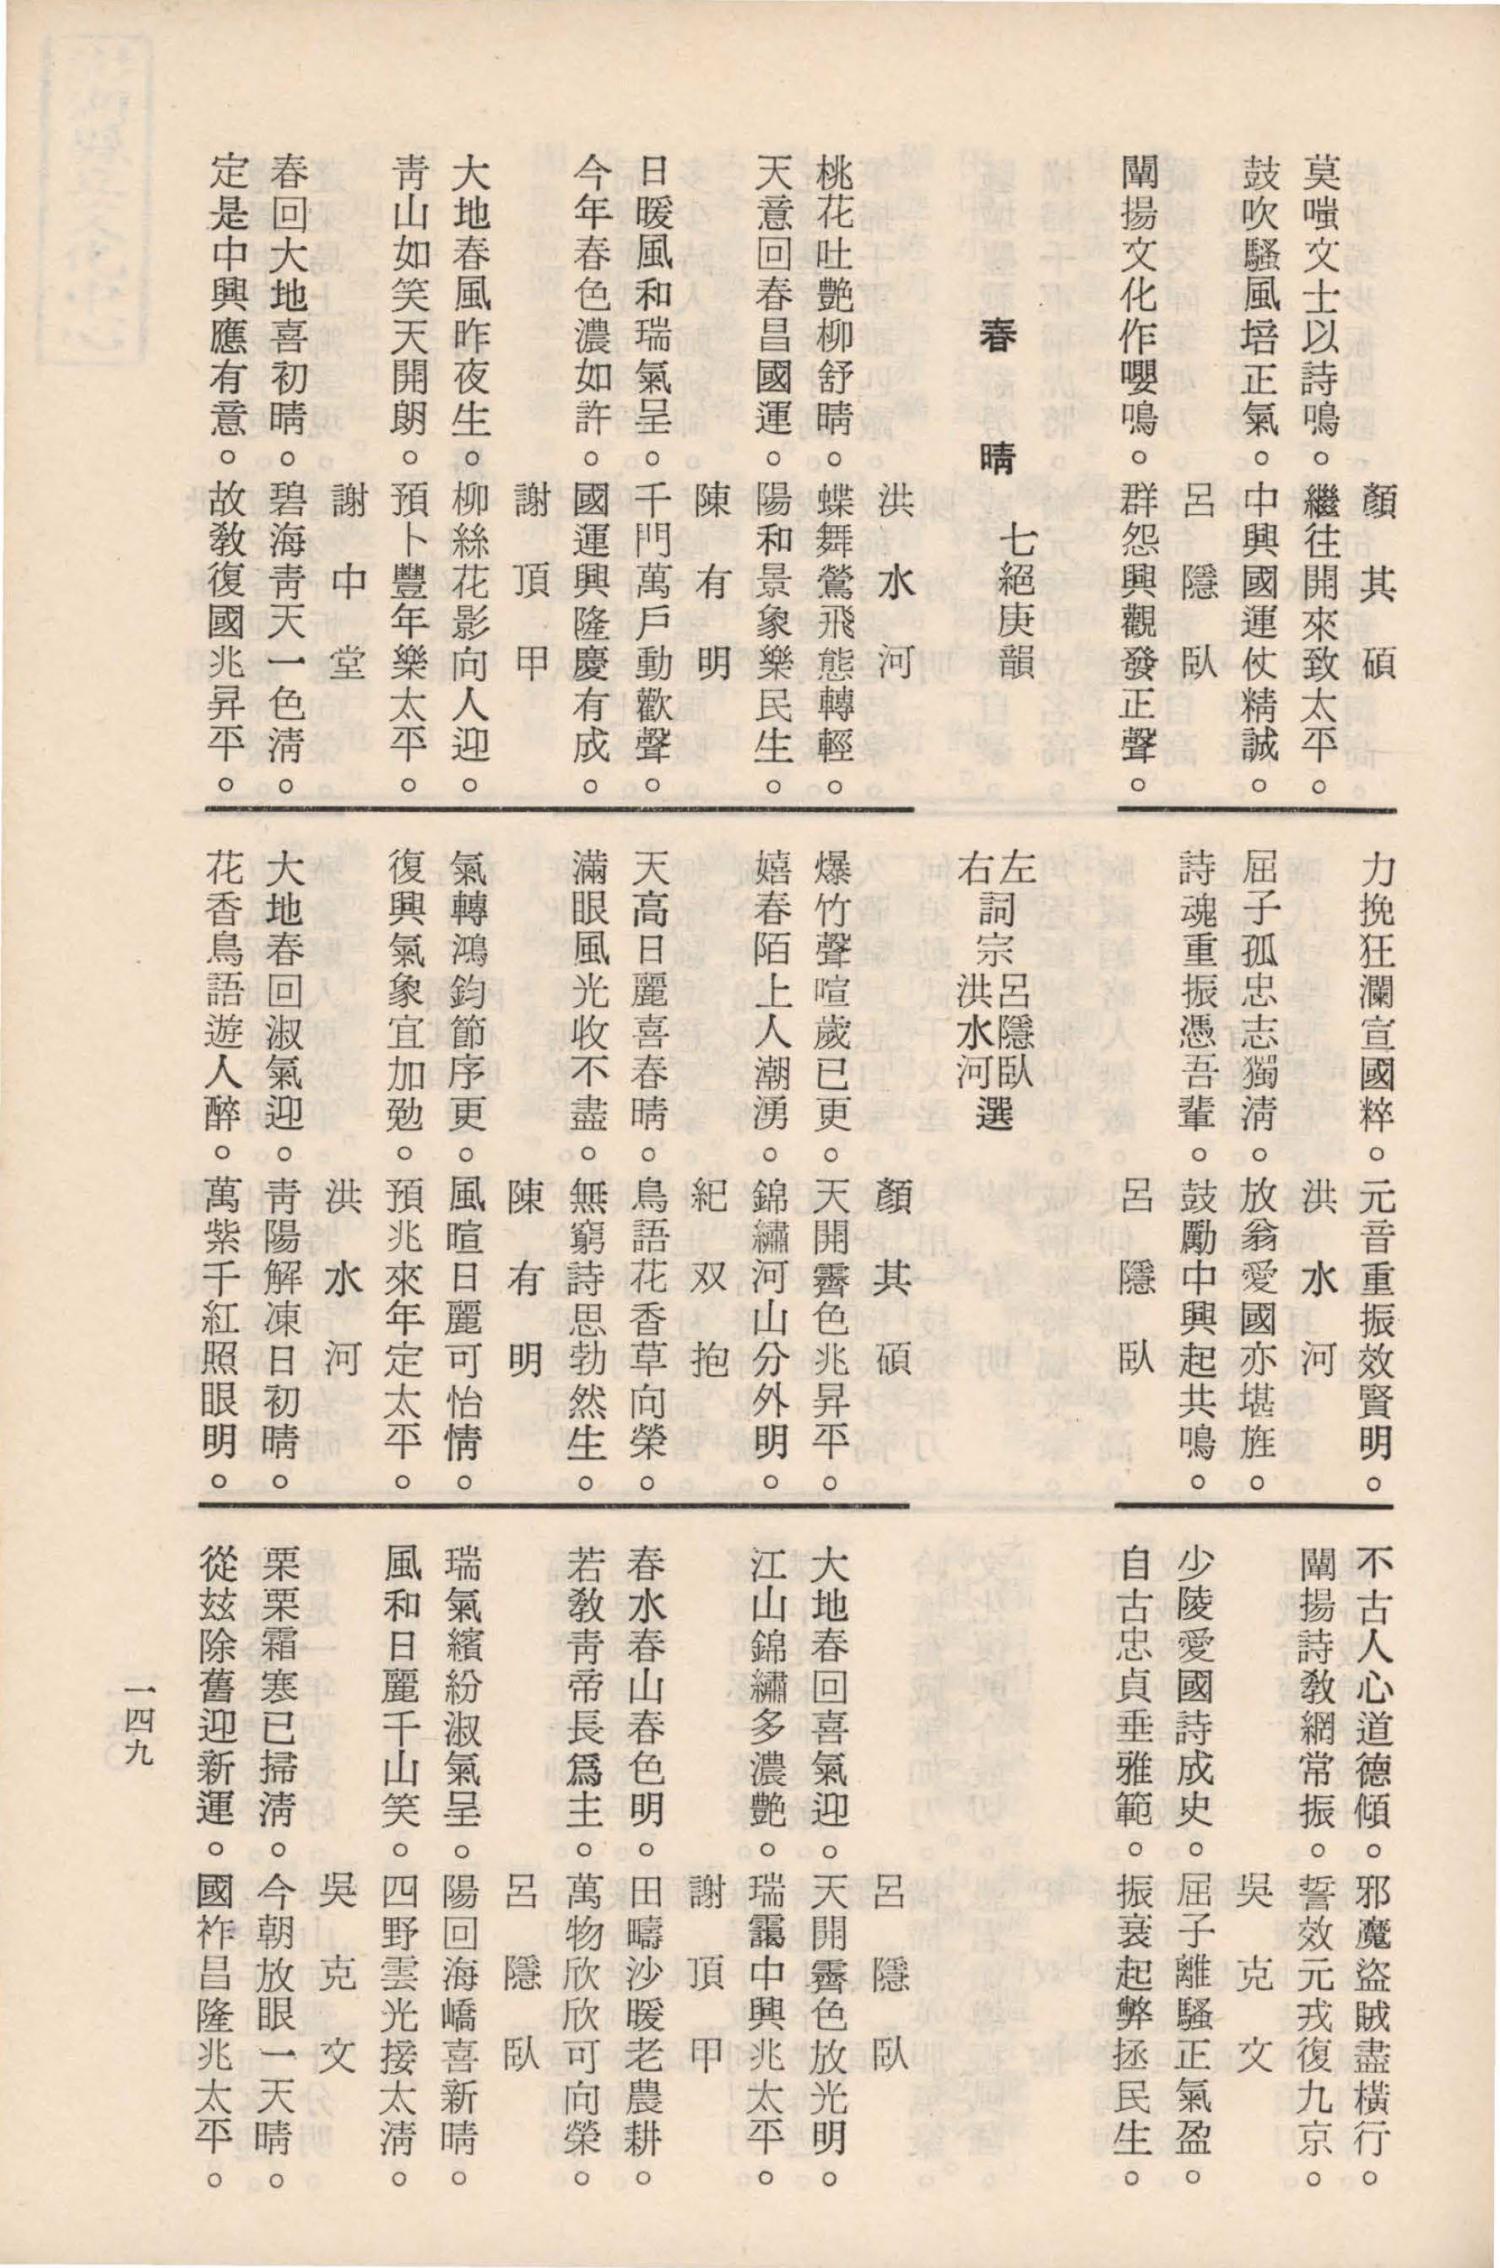 顏其碩
莫嗤文士以詩鳴。繼往開來致太平。
鼓吹騷風培正氣。中興國運仗精誠。
呂隱臥
闡揚文化作嚶鳴。群怨興觀發正聲。
力挽狂瀾宣國粹。元音重振效賢明。
洪水河
屈子孤忠志獨淸。放翁愛國亦堪旌。
詩魂重振憑吾輩。鼓勵中興起共鳴。
呂隱臥
不古人心道德傾。邪魔盜賊盡橫行。
闡揚詩敎網常振。誓效元戎復九京。
吳克文
少陵愛國詩成史。屈子離騷正氣盈。
自古忠貞垂雅範。振衰起弊拯民生。
春晴 七絕庚韻
左右詞宗 呂隱臥 洪水河 選
洪水河
桃花吐艷柳舒晴。蝶舞鶯飛態轉輕。
天意回春昌國運。陽和景象樂民生。
陳有明
日暖風和瑞氣呈。千門萬戶動歡聲。
今年春色濃如許。國運興隆慶有成。
謝頂甲
大地春風昨夜生。柳絲花影向人迎。
靑山如笑天開朗。預卜豐年樂太平。
謝中堂
春回大地喜初晴。碧海靑天一色淸。
定是中興應有意。故敎復國兆昇平。
顏其碩
爆竹聲喧歲已更。天開霽色兆昇平。
嬉春陌上人潮湧。錦繡河山分外明。
紀双抱
天高日麗喜春晴。鳥語花香草向榮。
滿眼風光收不盡。無窮詩思勃然生。
陳有明
氣轉鴻鈞節序更。風暄日麗可怡情。
復興氣象宜加勉。預兆來年定太平。
洪水河
大地春回淑氣迎。靑陽解凍日初晴。
花香鳥語遊人醉。萬紫千紅照眼明。
呂隱臥
大地春回喜氣迎。天開霽色放光明。
江山錦繡多濃艷。瑞靄中興兆太平。
謝頂甲
春水春山春色明。田疇沙暖老農耕。
若敎靑帝長爲主。萬物欣欣可向榮。
呂隱臥
瑞氣繽紛淑氣呈。陽回海嶠喜新晴。
風和日麗千山笑。四野雲光接太淸。
吳克文
栗栗霜寒已掃淸。今朝放眼一天晴。
從玆除舊迎新運。國祚昌隆兆太平。
一四九